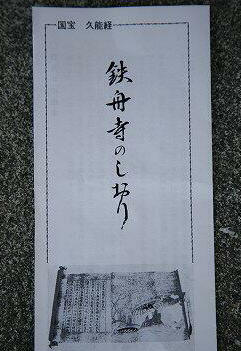 国宝 久能経
鉄舟寺のしおり